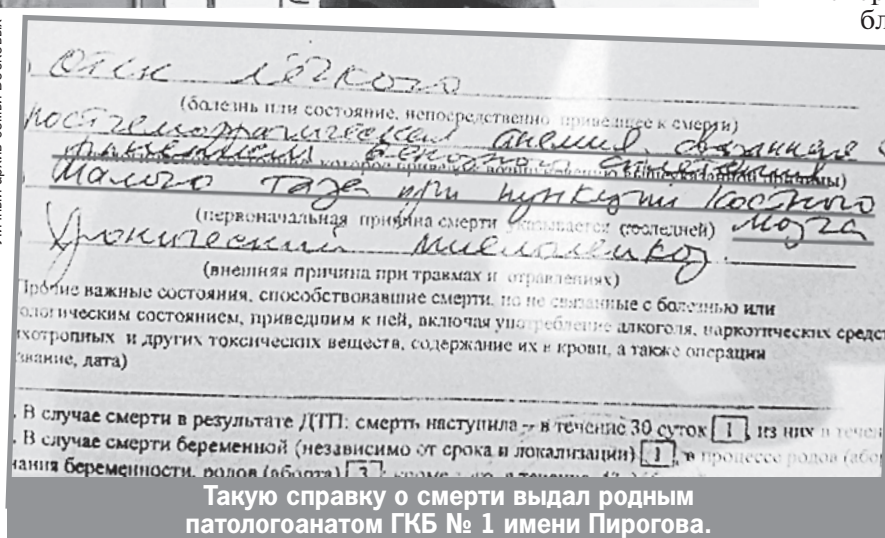 бл
Отек лёгкого
(болезнь или состояние, непосредственно приведшее к смерти)
постгеморрагическая анемия, связанная с
ранением венозного сплетения
малого таза при пункции костного
(первоначальная причина смерти указывается последней) мозга
Хронический миелолейкоз.
(внешняя причина при травмах и отравлениях)
Прочие важные состояния, способствовавшие смерти, но не связанные с болезнью или
ологическим состоянием, приведшим к ней, включая употребление алкоголя, наркотических средст
ихотропных и других токсических веществ, содержание их в крови, а также операция
звание, дата)
. В случае смерти в результате ДТП: смерть наступила – в течение 30 суток 1 , из них в течен
. В случае смерти беременной (независимо от срока и локализации) 1 , в процессе родов (або
чания беременности, родов (аборта) 3
Такую справку о смерти выдал родным
патологоанатом ГКБ № 1 имени Пирогова.